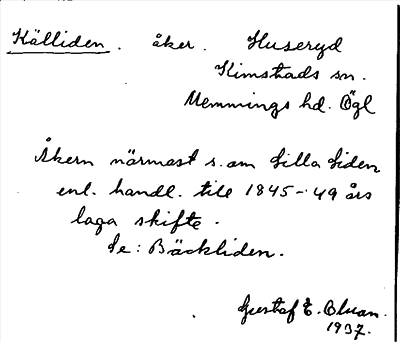 Källiden. åker. Huseryd
Kimstads sn.
Memmings hd. Ögl
Åkern närmast s. om Lilla Liden
enl. handl. till 1845-49 års
laga skifte.
Se: Bäckliden.
Gustaf E.
1937.